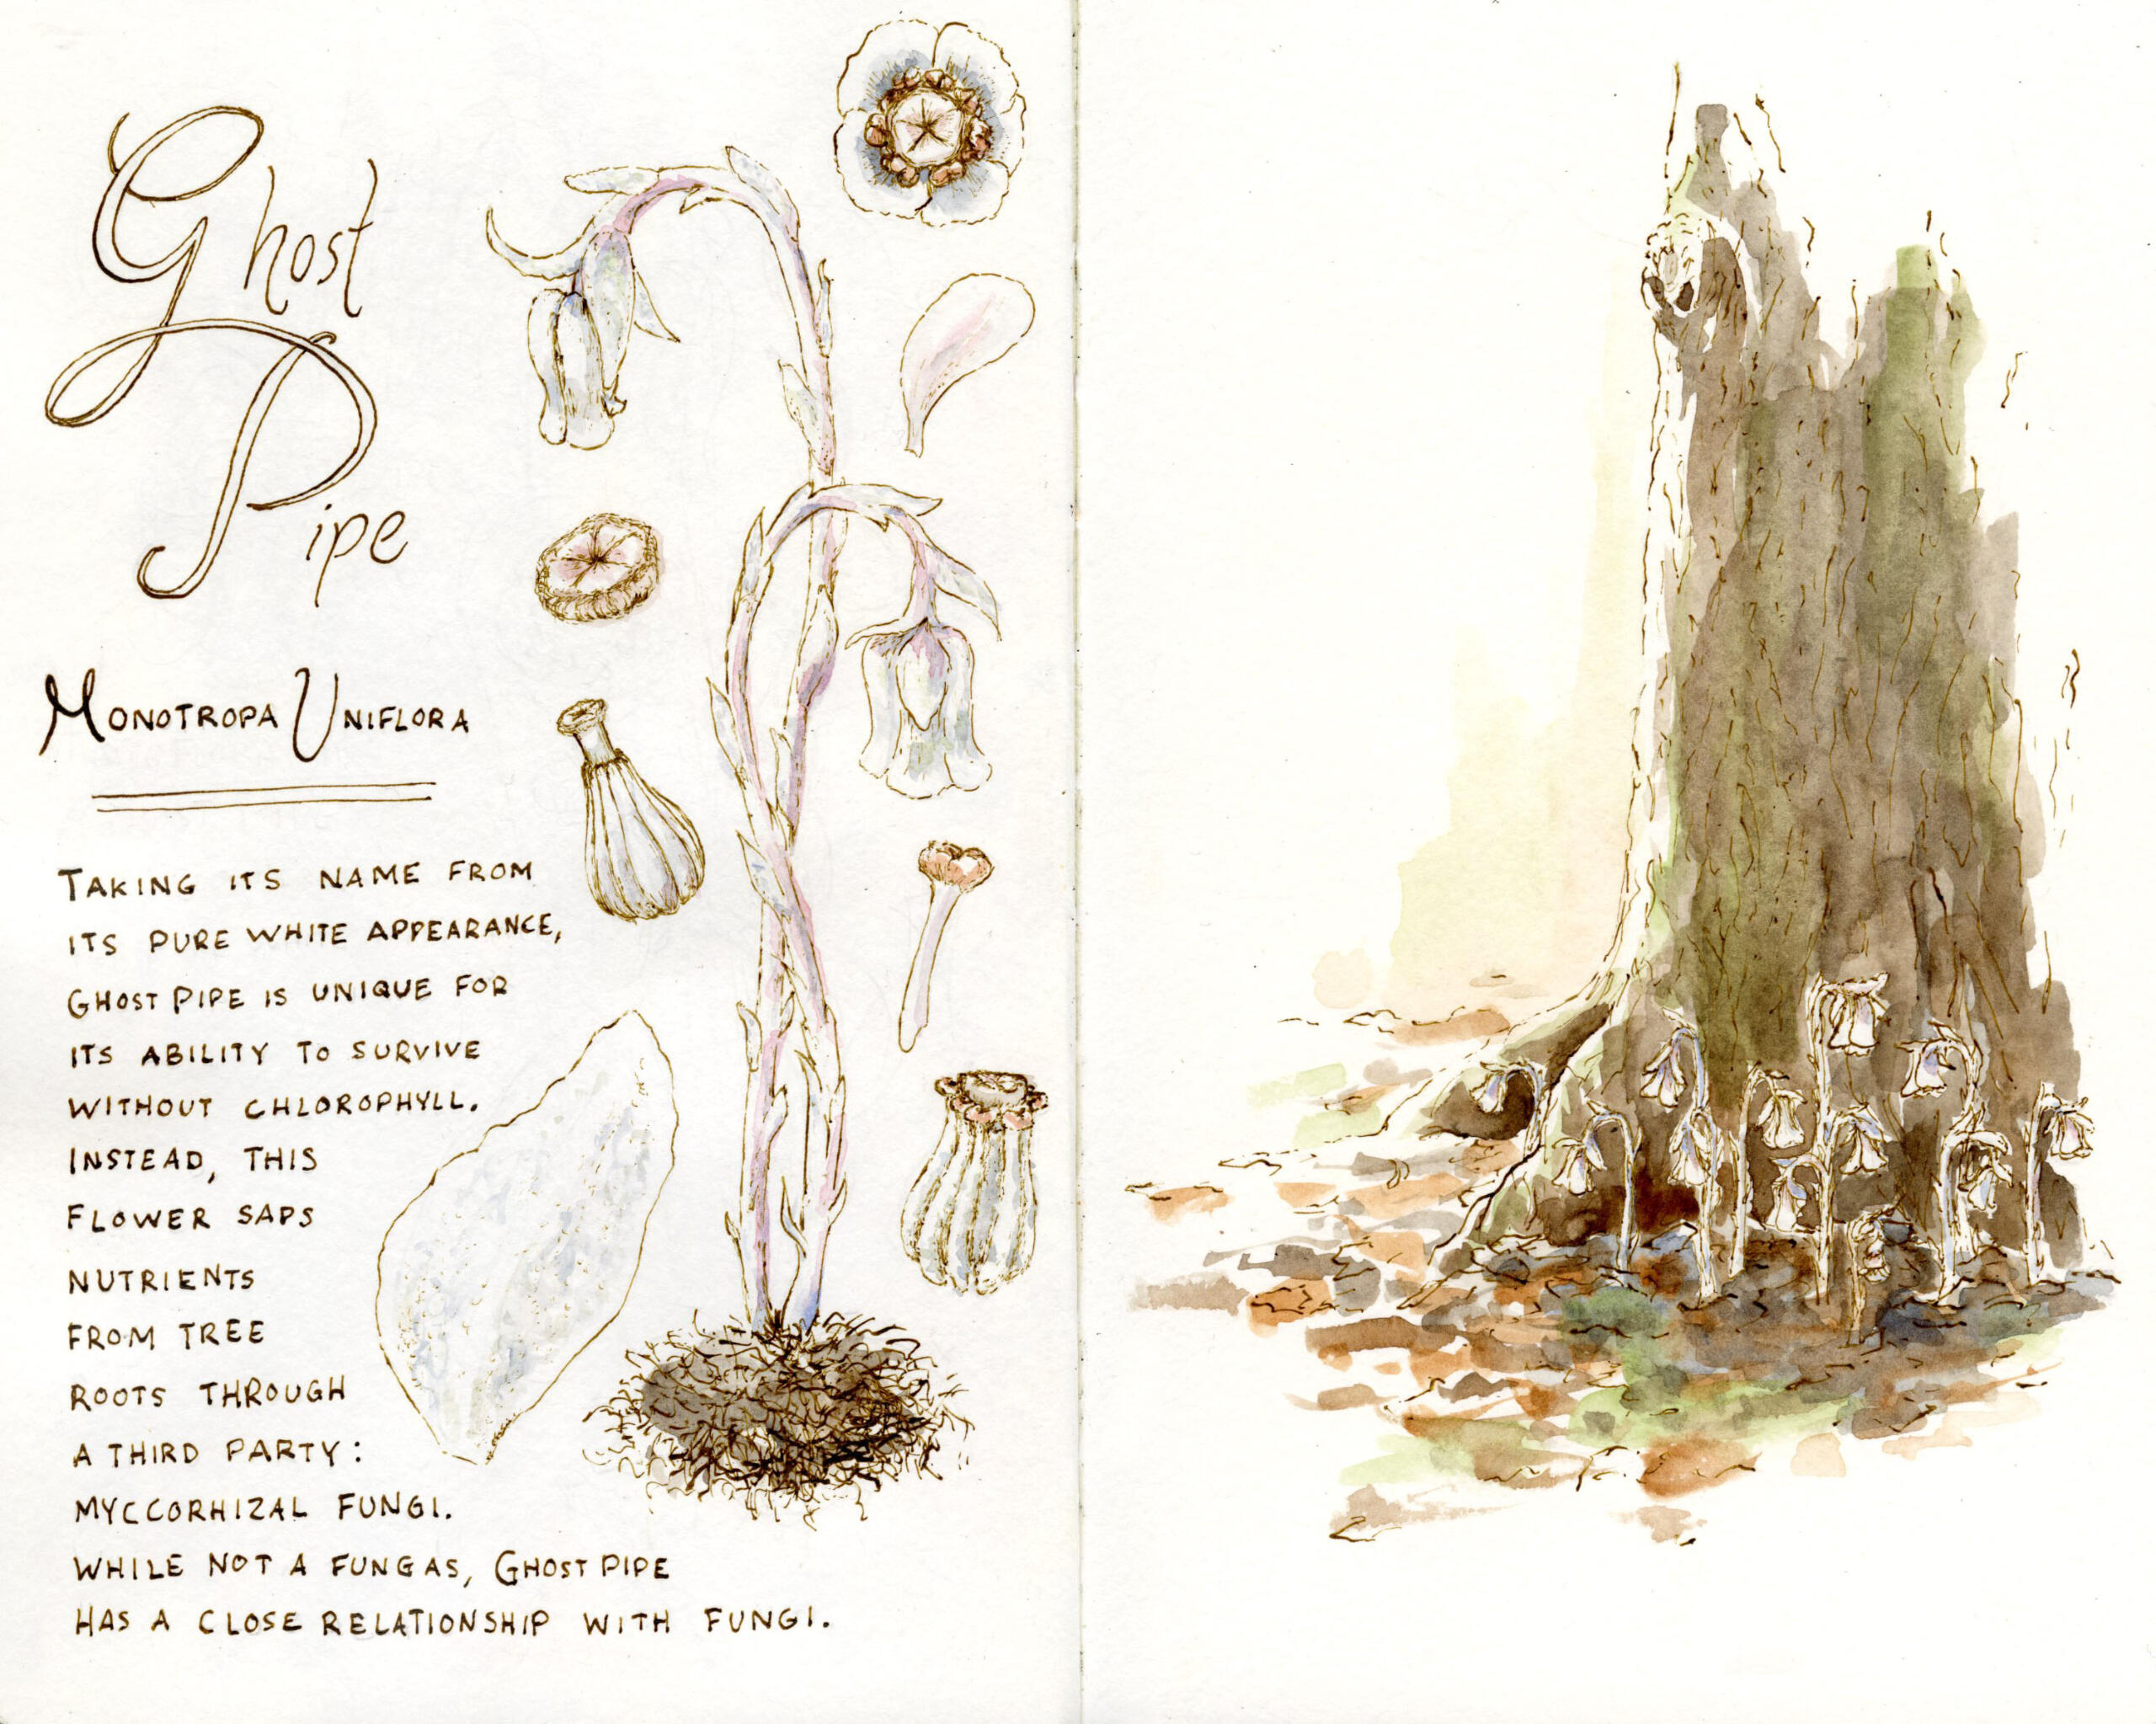 Ghost
Pipe
MONOTROPA UNIFLORA
TAKING ITS NAME FROM
ITS PURE WHITE APPEARANCE,
GHOST PIPE IS UNIQUE FOR
ITS ABILITY TO SURVIVE
WITHOUT CHLOROPHYLL.
INSTEAD, THIS
FLOWER SAPS
NUTRIENTS
FROM TREE
ROOTS THROUGH
A THIRD PARTY:
MYCCORHIZAL FUNGI.
WHILE NOT A FUNGAS, GHOST PIPE
HAS A CLOSE RELATIONSHIP WITH FUNGI.